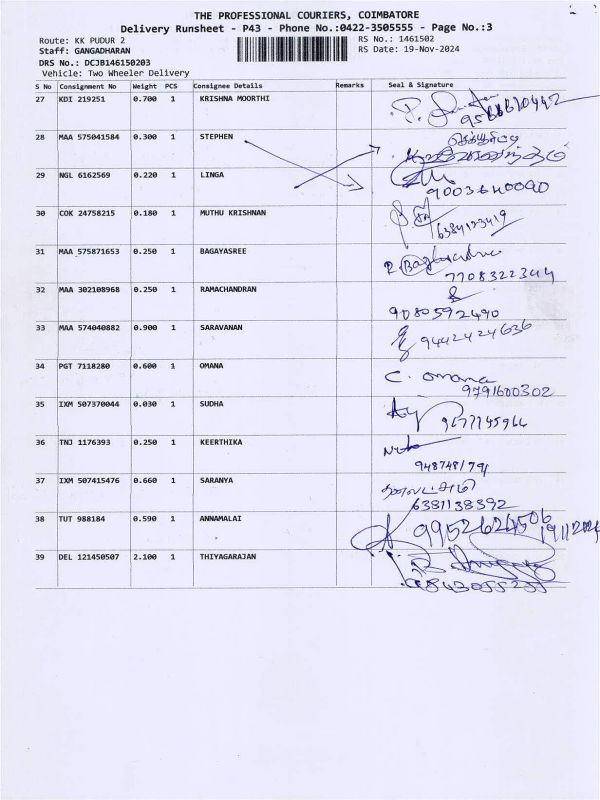 THE PROFESSIONAL COURIERS, COIMBATORE
Delivery Runsheet - P43 - Phone No.:0422-3505555 - Page No.:3
Route: KK PUDUR 2
RS No.: 1461502
Staff: GANGADHARAN
RS Date: 19-Nov-2024
DRS No.: DCJB146150203
Vehicle: Two Wheeler Delivery
S No Consignment No Weight PCS Consignee Details Remarks Seal & Signature
27 KDI 219251 0.700 1 KRISHNA MOORTHI
28 MAA 575041584 0.300 1 STEPHEN
29 NGL 6162569 0.220 1 LINGA
9003640090
30 COK 24758215 0.180 1 MUTHU KRISHNAN
6384123419
31 MAA 575871653 0.250 1 BAGAYASREE
7708322344
32 MAA 302108968 0.250 1 RAMACHANDRAN
9080592490
33 MAA 574040882 0.900 1 SARAVANAN
9442424636
34 PGT 7118280 0.600 1 OMANA
C. omana
9791600302
35 IXM 507370044 0.030 1 SUDHA
9677145964
36 TNJ 1176393 0.250 1 KEERTHIKA
37 IXM 507415476 0.660 1 SARANYA
6381138392
38 TUT 988184 0.590 1 ANNAMALAI
9952624506
39 DEL 121450507 2.100 1 THIYAGARAJAN
9843055255